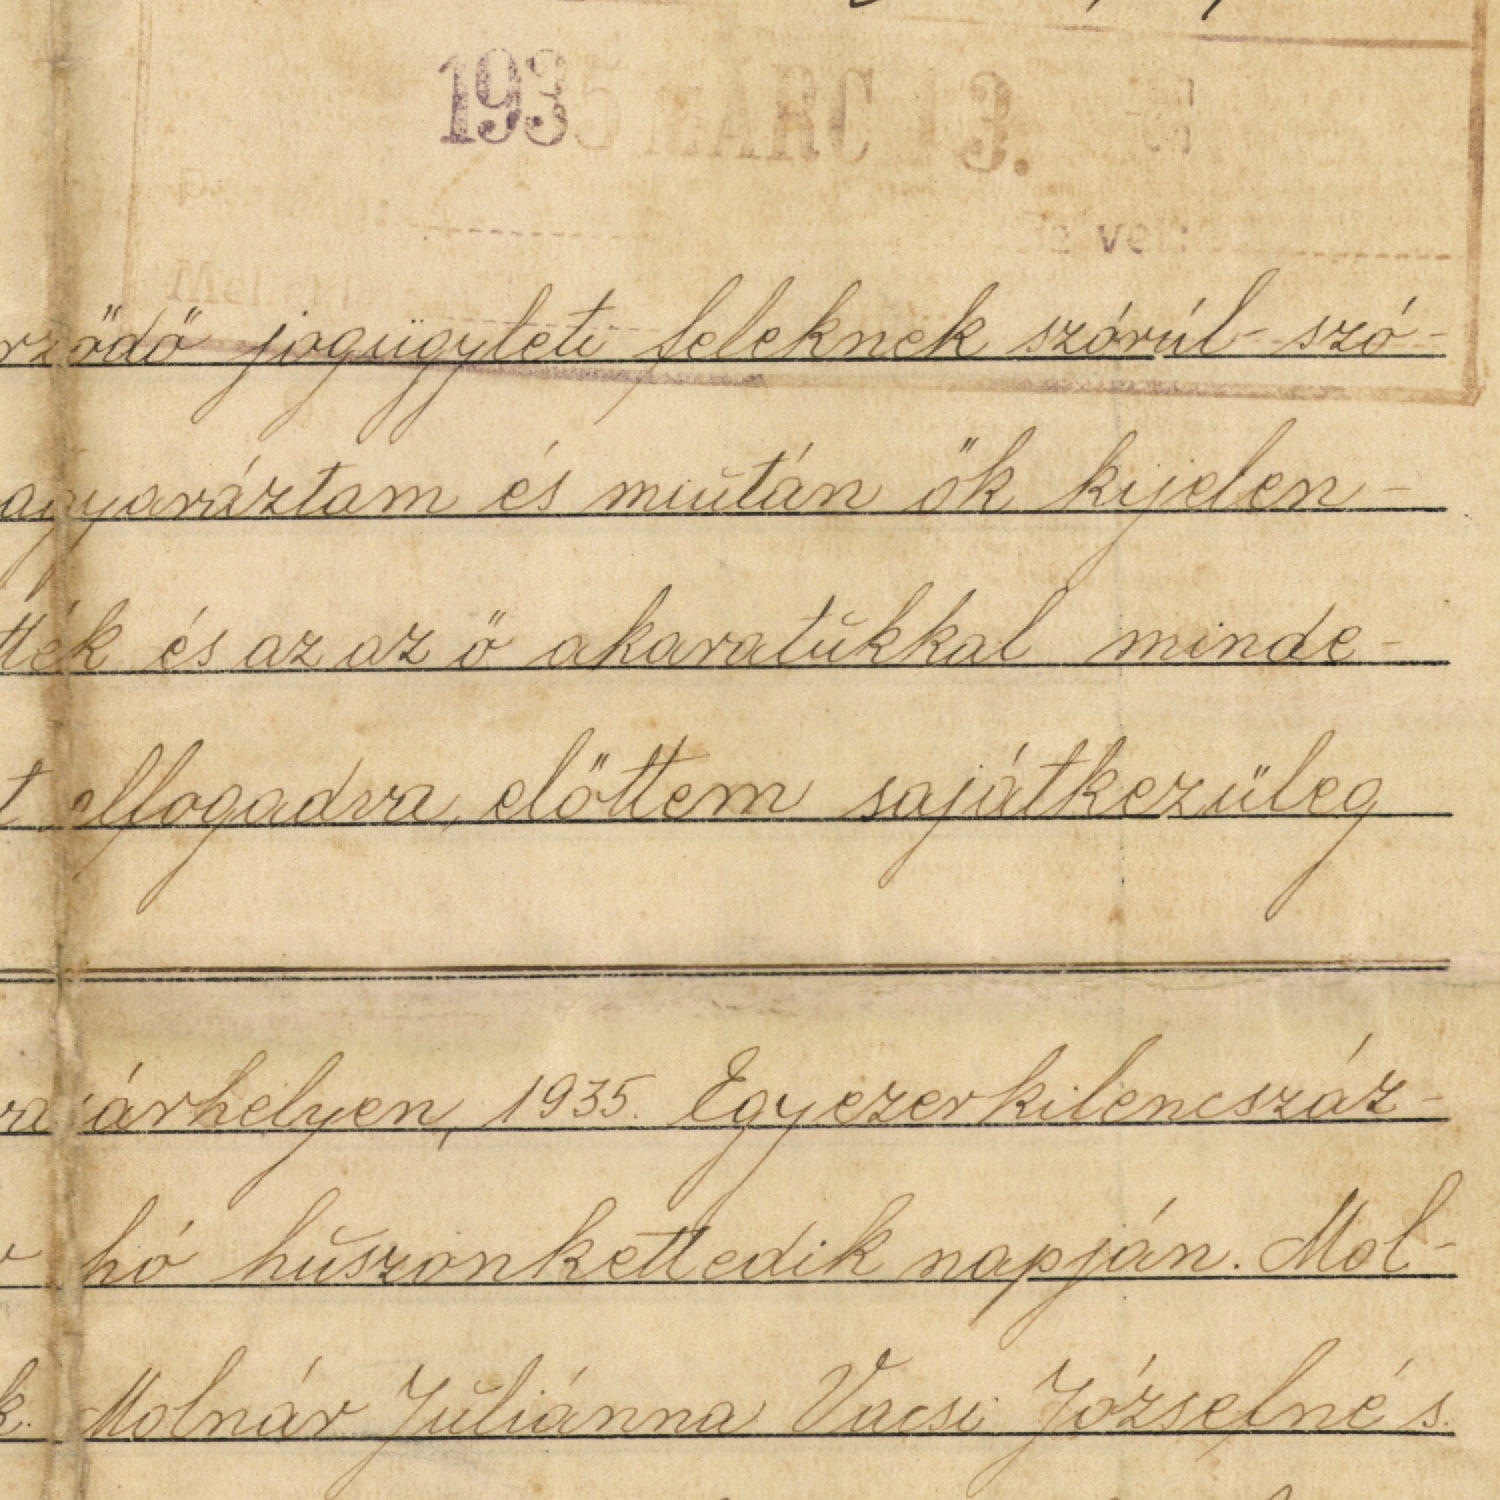 1935 MARC 13.
rződő jogügyleti feleknek szórúl-szó-
agyaráztam és miután ők kijelen-
tték és az az ő akaratukkal minde-
t elfogadva, előttem sajátkezüleg
árhelyen, 1935. Egyezerkilencszáz-
hó huszonkettedik napján. Mol-
k. Molnár Juliánna Vacsi Józsefné s.